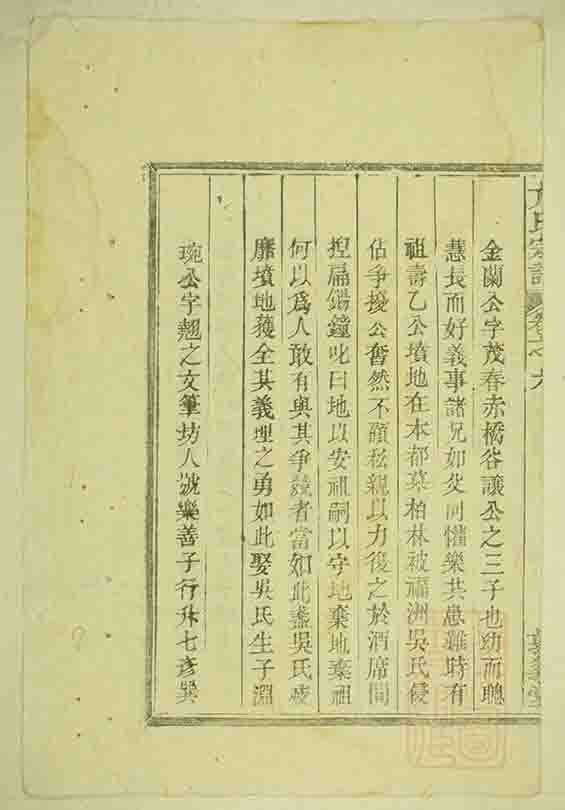 方氏宗譜 卷之六
金蘭公字茂春赤橋谷讓公之三子也幼而聰
慧長而好義事諸兄如父同懽樂共患難時有
祖壽乙公墳地在本都某柏林被福洲吳氏侵
佔爭擾公奮然不顧私親以力復之於酒席間
捏扁錫鐘叱曰地以安祖嗣以守地棄地棄祖
何以為人敢有與其爭競者當如此盞吳氏疲
靡墳地獲全其義理之勇如此娶吳氏生子淵
琬公字翹之文筆坊人號樂善子行升七彥巽